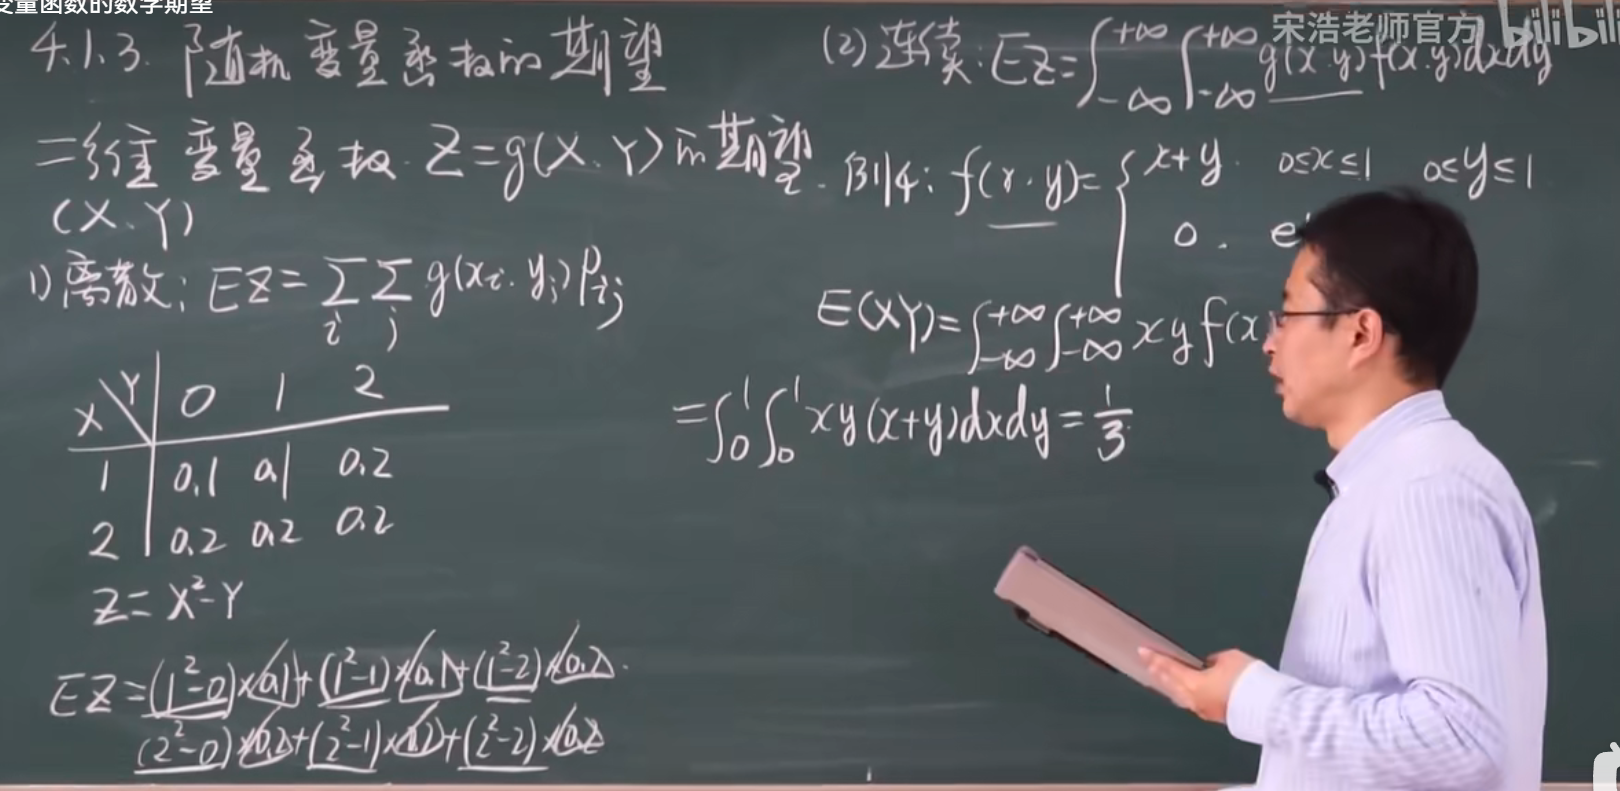 变量函数的数学期望
宋浩老师官方 bilibili
4.1.3. 随机变量函数的期望
二维变量函数. Z=g(X.Y)的期望.
(X.Y)
1) 离散: EZ=∑i ∑j g(xi.yj)Pij
X\Y 0 1 2
1 0.1 0.1 0.2
2 0.2 0.2 0.2
Z=X²-Y
EZ=(1²-0)×0.1+(1²-1)×0.1+(1²-2)×0.2.
(2²-0)×0.2+(2²-1)×0.2+(2²-2)×0.2
(2) 连续: EZ=∫-∞+∞ ∫-∞+∞ g(x.y)f(x.y)dxdy
例4: f(x.y)={ x+y. 0≤x≤1 0≤y≤1
0. e
E(XY)=∫-∞+∞ ∫-∞+∞ xyf(x
=∫01 ∫01 xy(x+y)dxdy=1/3